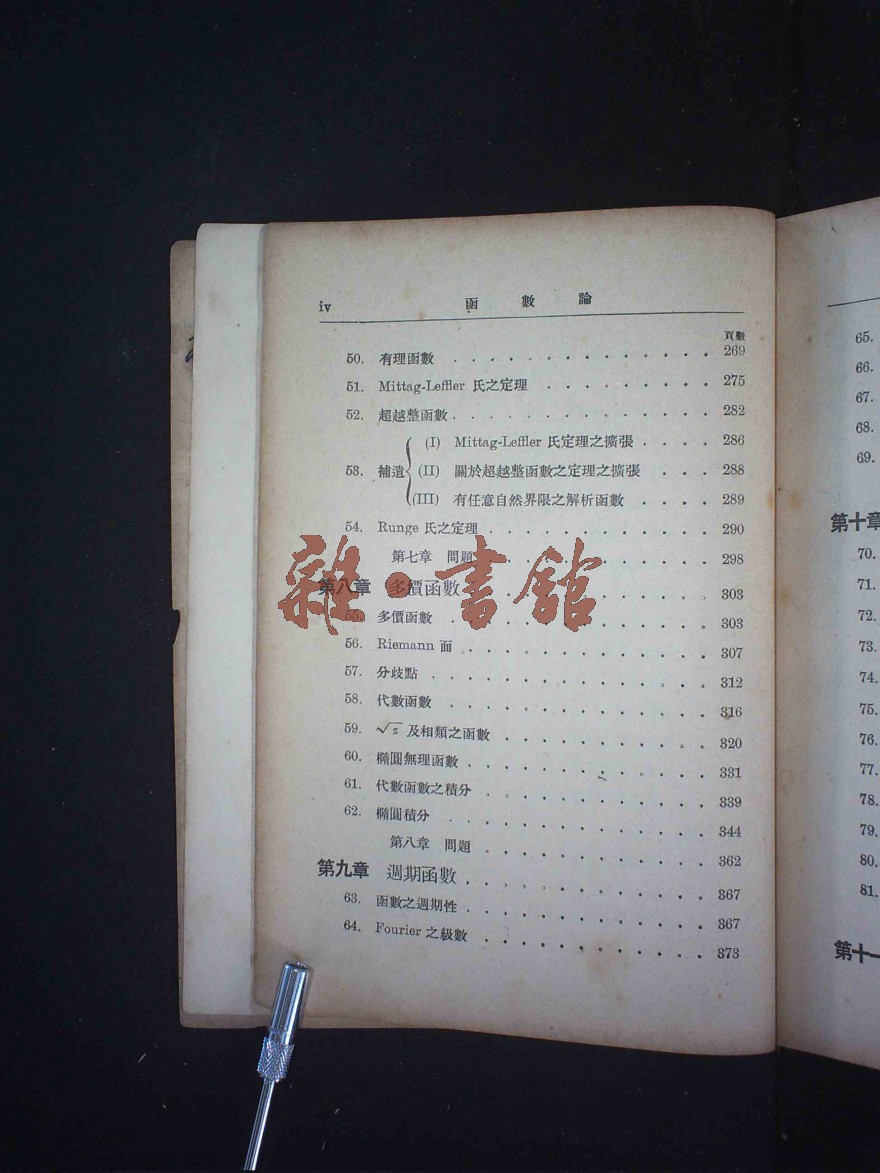 iv 函數論
頁數
50. 有理函數 . . . . . . . . . . . . . . 269
51. Mittag-Leffler 氏之定理 . . . . . . . . . 275
52. 超越整函數 . . . . . . . . . . . . . 282
53. 補遺 (I) Mittag-Leffler 氏定理之擴張 . . . . 286
(II) 關於超越整函數之定理之擴張 . . . . 288
(III) 有任意自然界限之解析函數 . . . . 289
54. Runge 氏之定理 . . . . . . . . . . . 290
第七章 問題 . . . . . . . . . . . 298
第八章 多價函數 . . . . . . . . . . . . 303
55. 多價函數 . . . . . . . . . . . . . 303
56. Riemann 面 . . . . . . . . . . . . . 307
57. 分歧點 . . . . . . . . . . . . . . 312
58. 代數函數 . . . . . . . . . . . . . 316
59. √z 及相類之函數 . . . . . . . . . . . 320
60. 橢圓無理函數 . . . . . . . . . . . . . 331
61. 代數函數之積分 . . . . . . . . . . . . 339
62. 橢圓積分 . . . . . . . . . . . . . 344
第八章 問題 . . . . . . . . . . . . 362
第九章 週期函數 . . . . . . . . . . . . . 367
63. 函數之週期性 . . . . . . . . . . . . . 367
64. Fourier 之級數 . . . . . . . . . . . . 373
雜·書館
65.
66.
67.
68.
69.
第十章
70.
71.
72.
73.
74.
75.
76.
77.
78.
79.
80.
81.
第十一